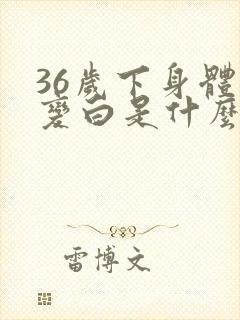 36歲下身體
變白是什麼
雷博文